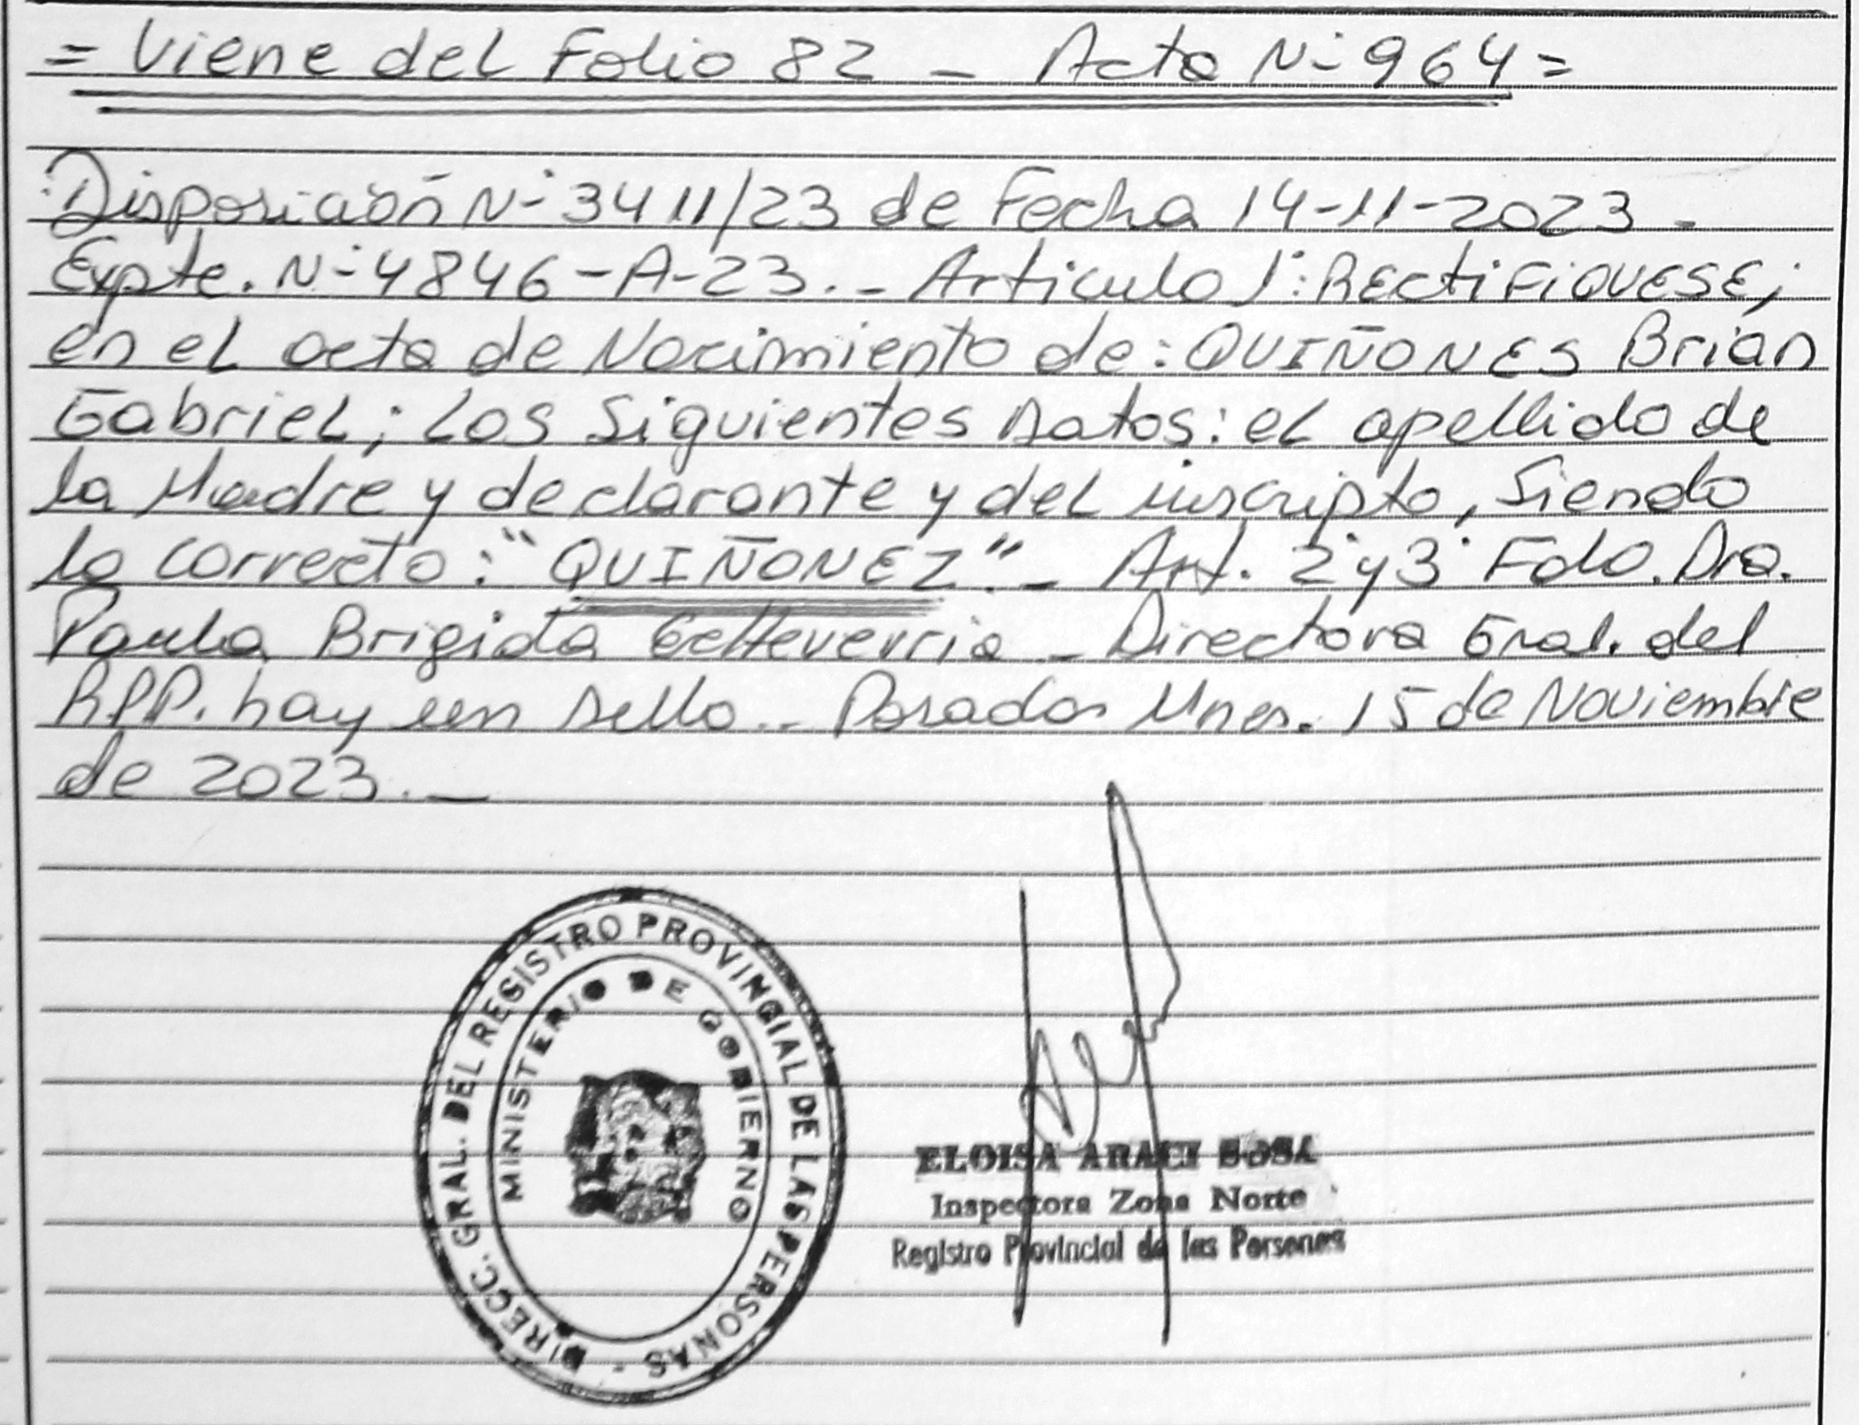 = Viene del Folio 82 - Acta N- 964 =
Disposición N- 3411/23 de Fecha 14-11-2023 -
Expte. N- 4846-A-23. - Articulo 1°: RECtiFiQUESE;
en el acta de Nacimiento de: QUIÑONES Brian
Gabriel; Los Siguientes Datos: el apellido de
la Madre y declarante y del inscripto, Siendo
lo correcto: "QUIÑONEZ" - Art. 2° y 3° Fdo. Dra.
Paula Brigida Echeverria - Directora Gral. del
R.P.P. hay un sello - Posadas Mnes. 15 de Noviembre
de 2023. -
DIRECC. GRAL. DEL REGISTRO PROVINCIAL DE LAS PERSONAS -
MINISTERIO DE GOBIERNO
ELOISA ARACI SOSA
Inspectora Zona Norte
Registro Provincial de las Personas